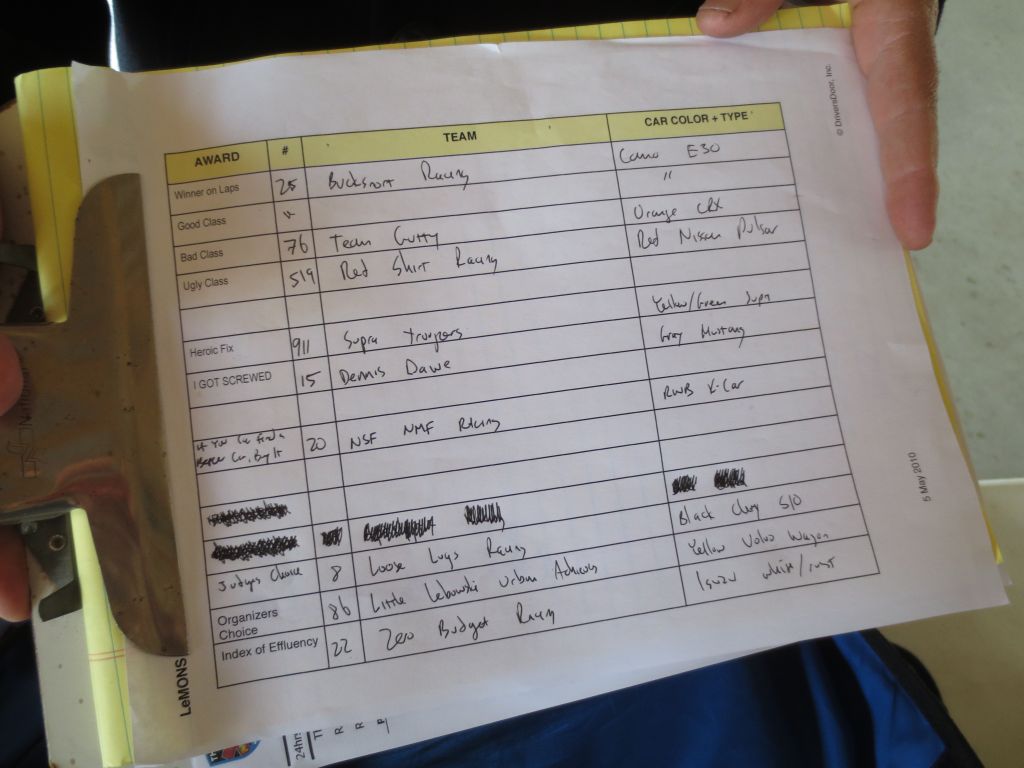 © DriversDoor, Inc.
AWARD # TEAM CAR COLOR + TYPE
Winner on Laps 25 Bucksnort Racing Camo E30
Good Class " "
Bad Class 76 Team Gutty Orange CRX
Ugly Class 519 Red Shirt Racing Red Nissan Pulsar
Heroic Fix 911 Supra Troopers Yellow/Green Supra
I GOT SCREWED 15 Dennis Dawe Gray Mustang
If You Can Find a
Better Car, Buy It 20 NSF NMF Racing RWB K-Car
Judges Choice 8 Loose Lugs Racing Black Chevy S10
Organizers
Choice 86 Little Lebowski Urban Achievers Yellow Volvo Wagon
Index of Effluency 22 Zero Budget Racing Isuzu white/rust
LeMONS
5 May 2010
24hrs